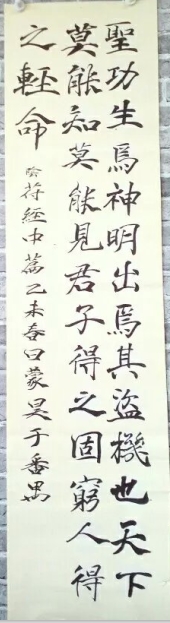 聖功生焉神明出焉其盜機也天下
莫能知莫能見君子得之固窮人得
之輕命
陰符經中篇乙未春日蒙昊于番禺